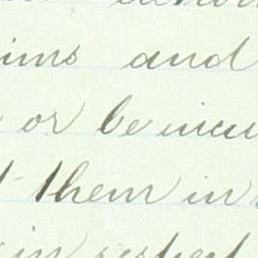 ims and
or be incu
t them in
in respect